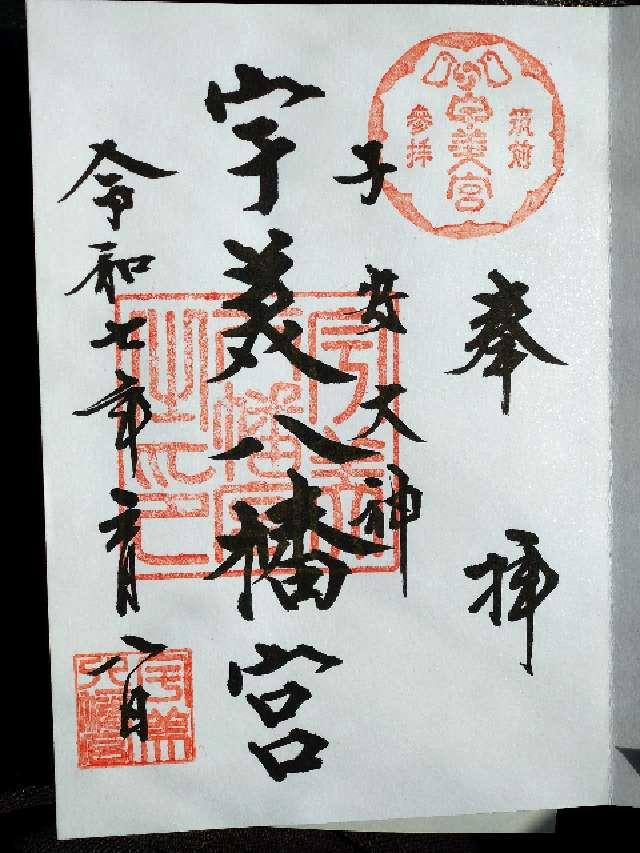 奉拝
筑前
宇美宮
參拝
子安大神
宇美八幡宮
宇美八幡宮之印
令和七年 月 日
宇美八幡宮